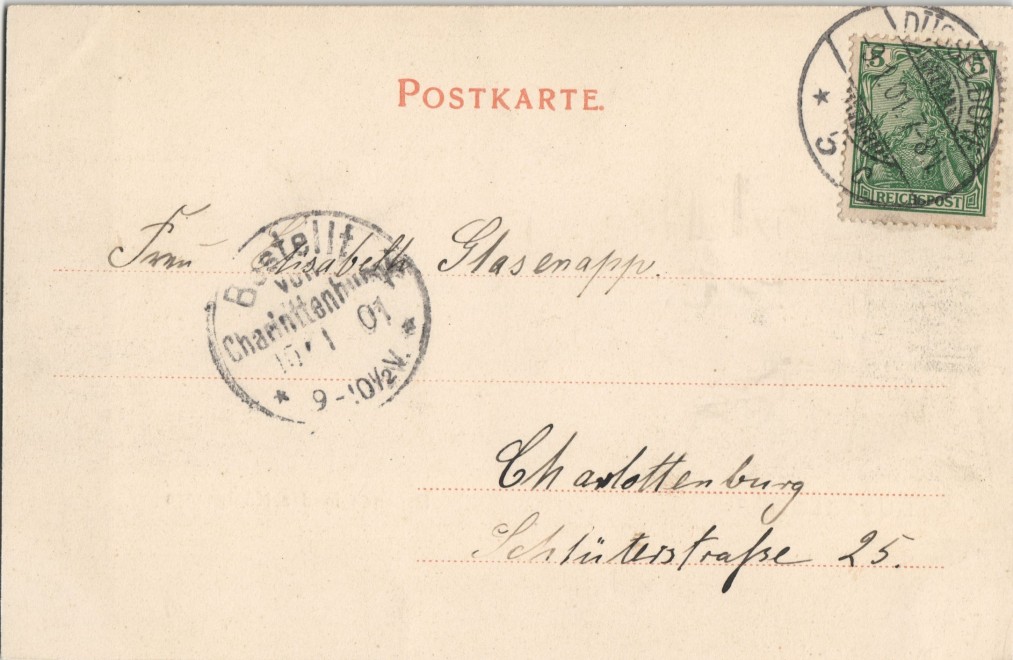 POSTKARTE.
DÜSSELDORF
5 5
01. 7-8N
* 5 c
REICHSPOST
Frau Elisabeth Glasenapp.
Bestellt
vom
Charlottenburg
1 01
* 9-10½V. *
Charlottenburg
Schlüterstraße 25.